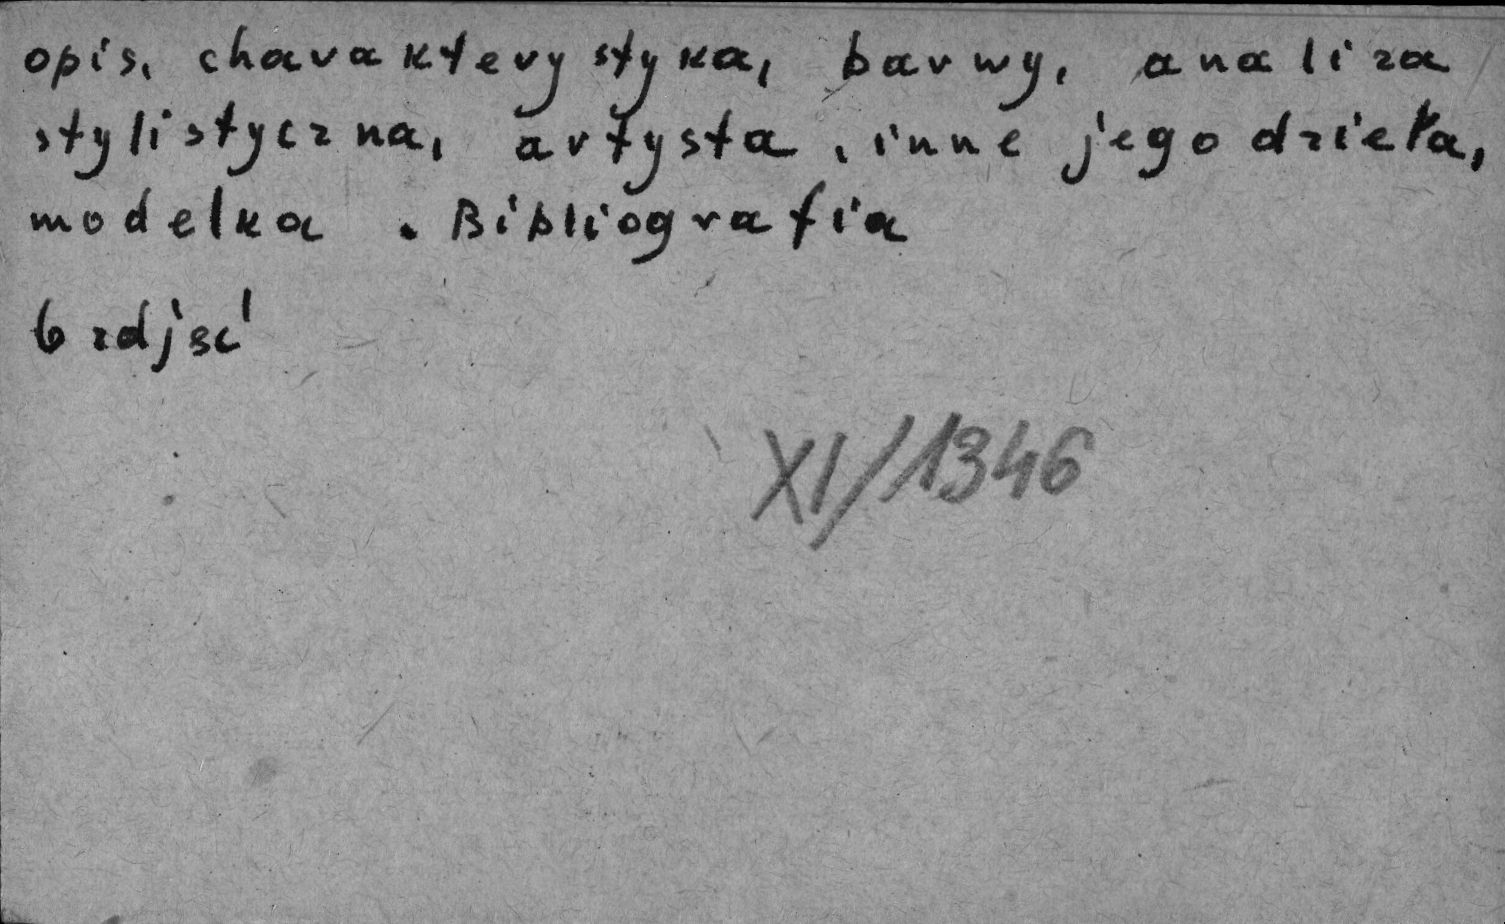 opis, charakterystyka, barwy, analiza
stylistyczna, artysta, inne jego dzieła,
modelka. Bibliografia
6 zdjęć
XI/1346